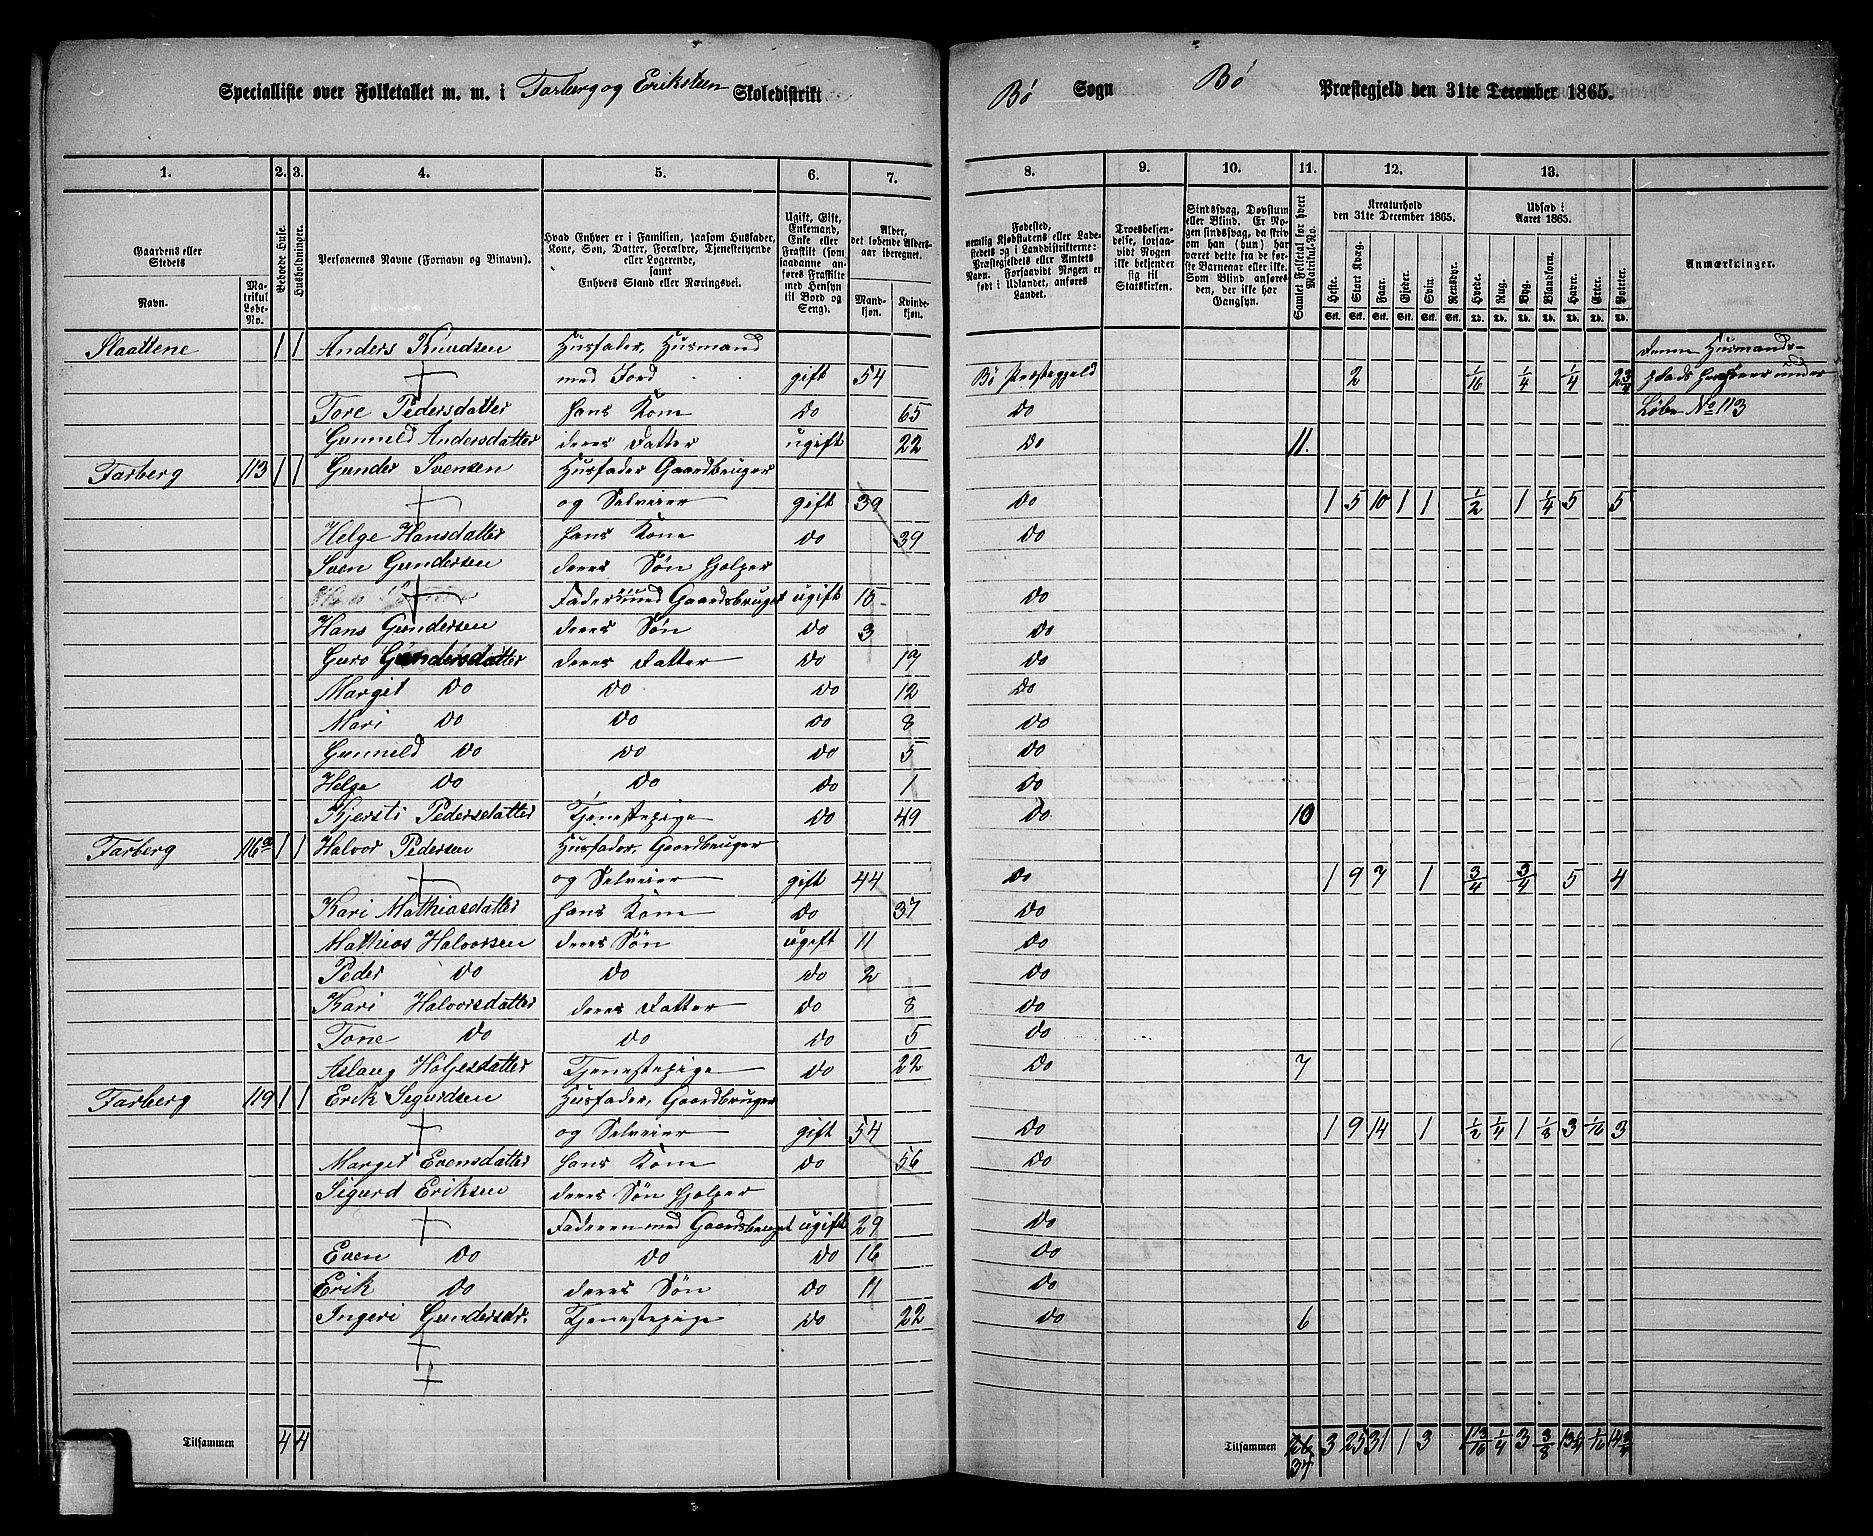 Specialliste over Folketallet m. m. i Farberg og Eriksteen Skoledistrikt Bø Sogn Bø Præstegjeld den 31te December 1865.
1. 2. 3. 4. 5. 6. 7. 8. 9. 10. 11. 12. 13.
Gaardens eller Stedets Navn. Matrikul Løbe-No.
Beboede Huse.
Husholdninger.
Personernes Navne (Fornavn og Tilnavn).
Hvad Enhver er i Familien, saasom Husfader, Kone, Søn, Datter, Forældre, Tjenestetyende eller Logerende, samt Enhvers Stand eller Næringsvei.
Ugift, Gift, Enkemand, Enke eller Fraskilt (som saadanne anføres Fraskilte med Hensyn til Bord og Seng).
Alder, det løbende Alders-aar iberegnet. Mandkjøn. Kvindekjøn.
Fødested, nemlig Kjøbstadens eller Ladestedets og i Landdistrikterne: Præstegjeldets eller Amtets Navn. Forsaavidt Nogen er født i Udlandet, anføres Landet.
Troesbekjendelse, forsaavidt Nogen ikke bekjender sig til Statskirken.
Sindssvag, Døvstum eller Blind. Er Nogen sindssvag, da skriv om han (hun) har været dette fra de første Barneaar eller ikke. Som Blind anføres den, der ikke har Gangsyn.
Samlet Folketal for hvert Matrikul-No.
Kreaturhold den 31te December 1865. Heste. Stort Kvæg. Faar. Gjeder. Svin. Rensdyr.
Udsæd i Aaret 1865. Hvede. Rug. Byg. Blandkorn. Havre. Erter. Poteter.
Anmærkninger.
Slaattene 1 1 Anders Knudsen Husfader, Husmand Denne Husmands-
med Jord gift 54 Bø Præstegjeld 2 1/16 1/4 1/4 2 3/4 plads under
Tore Pedersdatter hans Kone do 65 do Løbe No 113
Gunneld Andersdatter deres Datter ugift 22 do 11.
Farberg 113 1 1 Gunder Svensen Husfader Gaardbruger
og Selveier gift 39 do 1 5 10 1 1 1/2 1 1/4 5 5
Helge Hansdatter hans Kone do 39 do
Sven Gundersen deres Søn hjelper
Faderen med Gaardsbruget ugift 15 do
Hans Gundersen deres Søn do 3 do
Guro Gundersdatter deres Datter do 17 do
Margit do do do 12 do
Mari do do do 8 do
Gunneld do do do 5 do
Helge do do do 1 do
Kjersti Pedersdatter Tjenestepige do 49 do 10
Farberg 116a 1 1 Halvor Pedersen Husfader, Gaardbruger
og Selveier gift 44 do 1 9 7 1 3/4 3/4 5 4
Kari Mathiasdatter hans Kone do 37 do
Mathias Halvorsen deres Søn ugift 11 do
Peder do do do 2 do
Kari Halvorsdatter deres Datter do 8 do
Tone do do do 5 do
Aslaug Holjesdatter Tjenestepige do 22 do 7
Farberg 119 1 1 Erik Sigurdsen Husfader, Gaardbruger
og Selveier gift 54 do 1 9 14 1 1/2 1/4 1 1/8 3 1/16 3
Margit Evensdatter hans Kone do 56 do
Sigurd Eriksen deres Søn hjelper
Faderen med Gaardsbruget ugift 29 do
Even do do do 16 do
Erik do deres Søn do 11 do
Ingeri Gundersdtr. Tjenestepige do 22 do 6
Tilsammen 4 4 Tilsammen 26 3 25 31 1 3 1 13/16 1/4 3 3/8 13 1/4 1/16 14 3/4
37